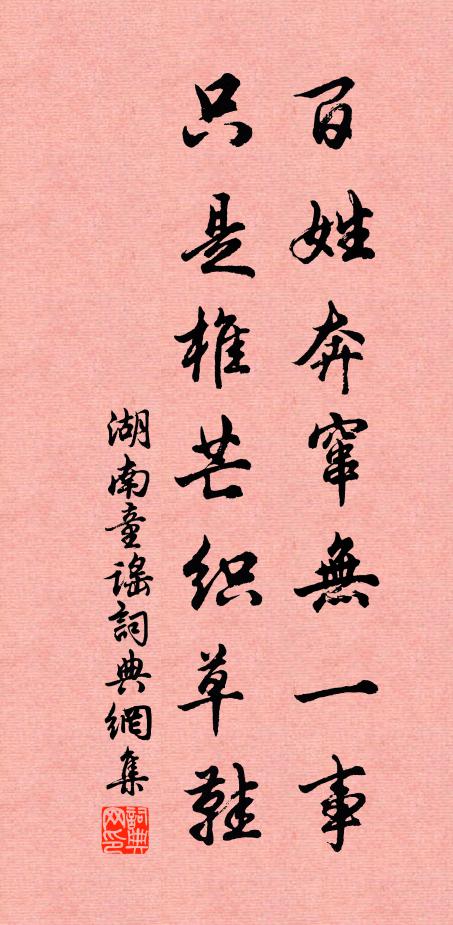 百姓奔窜無一事
只是椎芒织草鞋
湖南童谣詞典網集
詞典网印